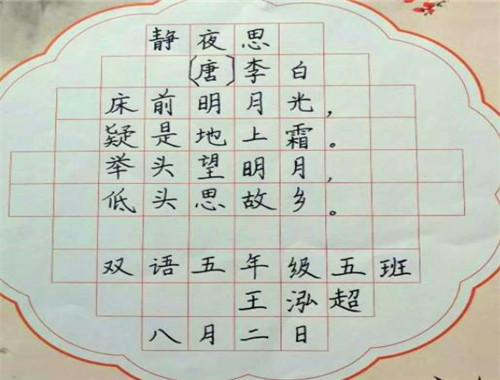 静夜思
[唐]李白
床前明月光，
疑是地上霜。
举头望明月，
低头思故乡。
双语五年级五班
王泓超
八月二日